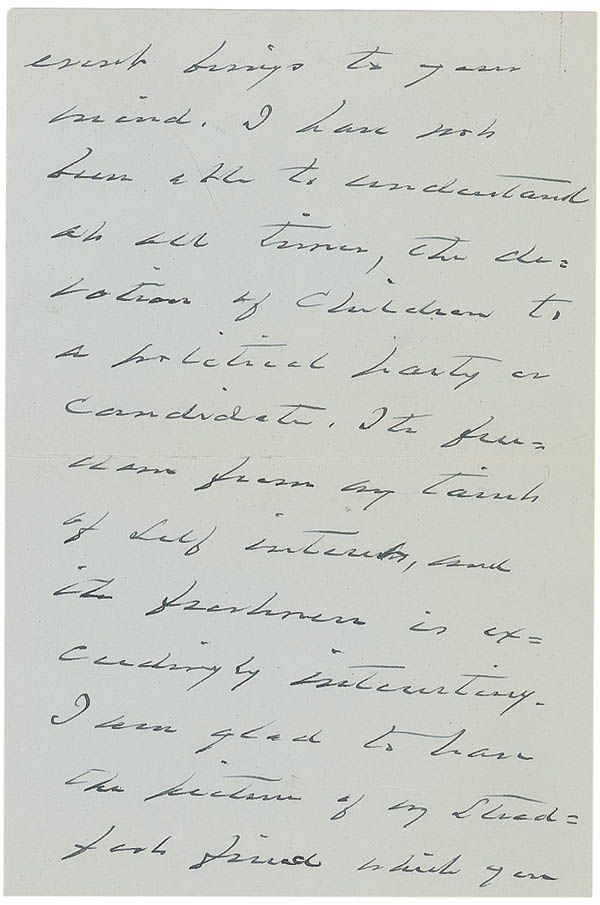 event brings to your
mind. I have not
been able to understand
at all times, the de=
votion of Children to
a political party or
Candidate. Its free=
dom from any taint
of self interest, and
its freshness is ex=
ceedingly interesting.
I am glad to have
the picture of my Stead=
fast friend which you